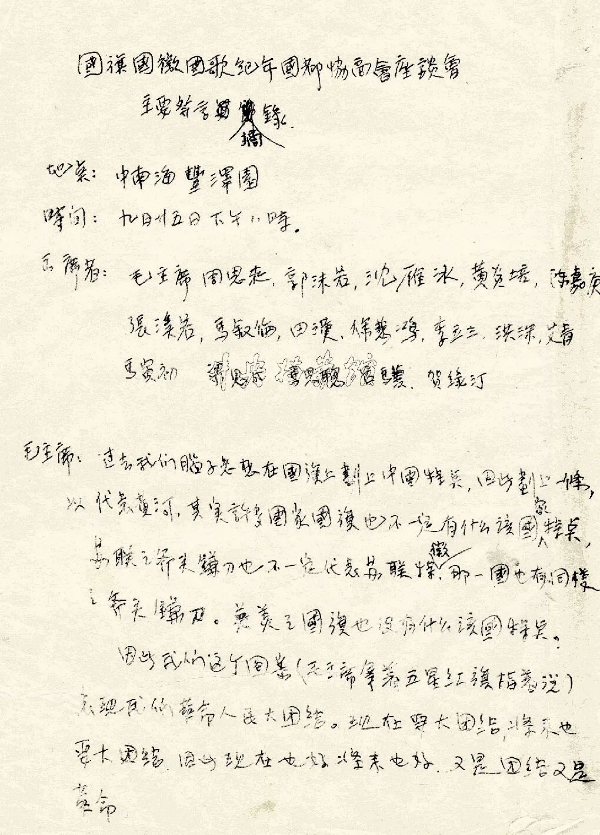 國旗國徽國歌紀年國都協商會座談會
主要發言 錄
地点：中南海豐澤園
時間：九月廿五日下午八時。
出席者：毛主席 周恩來，郭沫若，沈雁冰，黄炎培，陈嘉庚
張溪若，馬叙倫，田漢，徐悲鴻，李立三，洪深，艾青
馬寅初 梁思成 馬思聰 吕骥 贺绿汀
毛主席：过去我们脑子老想在國旗上劃上中國特点，因此劃上一條，
以代表黄河，其实許多國家國旗也不一定有什么該國家特点，
苏联之斧头鐮刀也不一定代表苏联特徵，那一國也有同樣
之斧头鐮刀。英美之國旗也没有什么該國特点。
因此我们这个图案（毛主席拿着五星红旗指着说）
表现我们革命人民大团结。现在要大团结，将来也
要大团结，因此现在也好将来也好，又是团结又是
革命